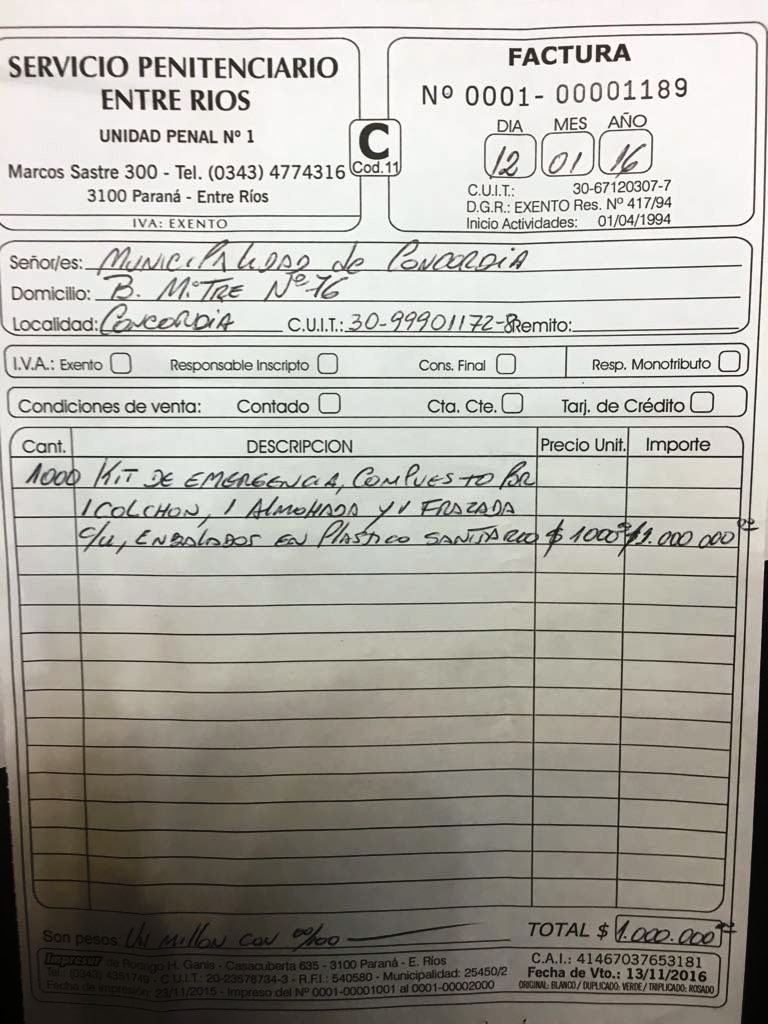 SERVICIO PENITENCIARIO
ENTRE RIOS
UNIDAD PENAL Nº 1
Marcos Sastre 300 - Tel. (0343) 4774316
3100 Paraná - Entre Ríos
IVA: EXENTO
C
Cod.11
FACTURA
Nº 0001- 00001189
DIA MES AÑO
12 01 16
C.U.I.T.: 30-67120307-7
D.G.R.: EXENTO Res. Nº 417/94
Inicio Actividades: 01/04/1994
Señor/es: MUNICIPALIDAD de CONCORDIA
Domicilio: B. MITRE Nº 76
Localidad: CONCORDIA C.U.I.T.: 30-99901172-8 Remito:
I.V.A.: Exento Responsable Inscripto Cons. Final Resp. Monotributo
Condiciones de venta: Contado Cta. Cte. Tarj. de Crédito
Cant. DESCRIPCION Precio Unit. Importe
1000 KIT DE EMERGENCIA, COMPUESTO POR
1 COLCHON, 1 ALMOHADA Y 1 FRAZADA
C/U, ENBALADOS EN PLASTICO SANITARIO $ 1000 $1.000.000
Son pesos: UN MILLON CON 00/100 TOTAL $ 1.000.000
Impresur de Rodrigo H. Ganis - Casacuberta 635 - 3100 Paraná - E. Ríos
Tel.: (0343) 4351749 - C.U.I.T.: 20-23578734-3 - R.F.I.: 540580 - Municipalidad: 25450/2
Fecha de impresión: 23/11/2015 - Impreso del Nº 0001-00001001 al 0001-00002000
C.A.I.: 41467037653181
Fecha de Vto.: 13/11/2016
ORIGINAL: BLANCO / DUPLICADO: VERDE / TRIPLICADO: ROSADO